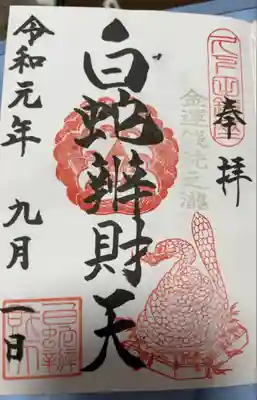 奉拝
金運銭洗之瀧
白蛇辨財天
令和元年 九月 一日